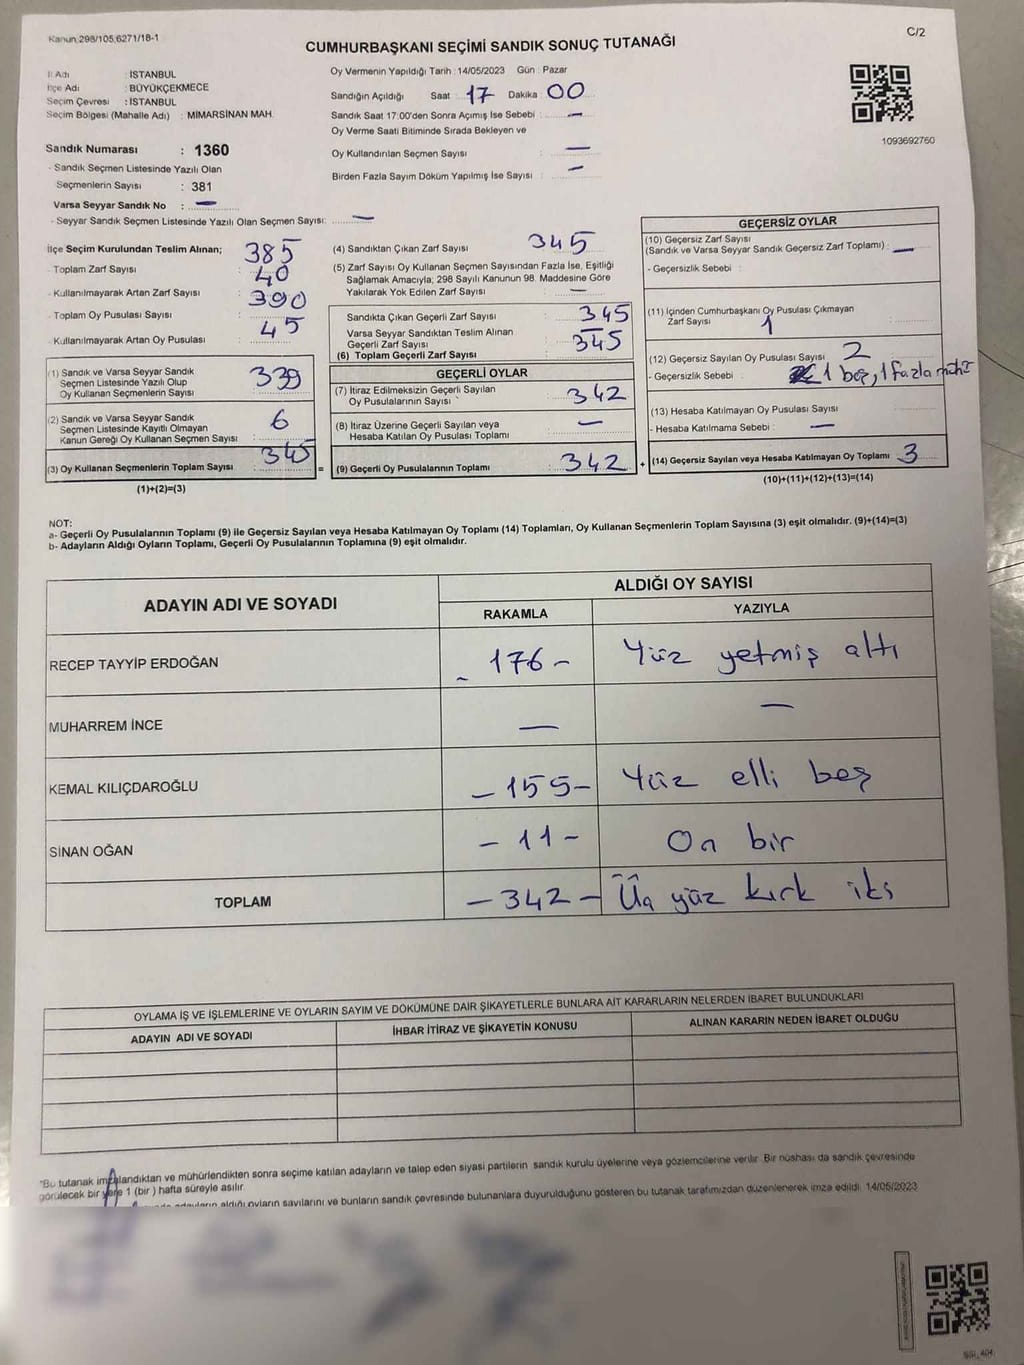 Kanun 298/105,6271/18-1
C/2
CUMHURBAŞKANI SEÇİMİ SANDIK SONUÇ TUTANAĞI
İl Adı : İSTANBUL
İlçe Adı : BÜYÜKÇEKMECE
Seçim Çevresi : İSTANBUL
Seçim Bölgesi (Mahalle Adı) : MİMARSİNAN MAH.
Sandık Numarası : 1360
- Sandık Seçmen Listesinde Yazılı Olan
Seçmenlerin Sayısı : 381
Varsa Seyyar Sandık No : —
- Seyyar Sandık Seçmen Listesinde Yazılı Olan Seçmen Sayısı: —
Oy Vermenin Yapıldığı Tarih :14/05/2023 Gün : Pazar
Sandığın Açıldığı Saat : 17 Dakika : 00
Sandık Saat 17:00'den Sonra Açımış İse Sebebi : —
Oy Verme Saati Bitiminde Sırada Bekleyen ve
Oy Kullandırılan Seçmen Sayısı : —
Birden Fazla Sayım Döküm Yapılmış İse Sayısı : —
1093692760
İlçe Seçim Kurulundan Teslim Alınan;
- Toplam Zarf Sayısı : 385
- Kullanılmayarak Artan Zarf Sayısı : 40
- Toplam Oy Pusulası Sayısı : 390
- Kullanılmayarak Artan Oy Pusulası : 45
(1) Sandık ve Varsa Seyyar Sandık
Seçmen Listesinde Yazılı Olup
Oy Kullanan Seçmenlerin Sayısı : 339
(2) Sandık ve Varsa Seyyar Sandık
Seçmen Listesinde Kayıtlı Olmayan
Kanun Gereği Oy Kullanan Seçmen Sayısı : 6
(3) Oy Kullanan Seçmenlerin Toplam Sayısı : 345
(1)+(2)=(3)
(4) Sandıktan Çıkan Zarf Sayısı : 345
(5) Zarf Sayısı Oy Kullanan Seçmen Sayısından Fazla İse, Eşitliği
Sağlamak Amacıyla; 298 Sayılı Kanunun 98. Maddesine Göre
Yakılarak Yok Edilen Zarf Sayısı : —
Sandıkta Çıkan Geçerli Zarf Sayısı : 345
Varsa Seyyar Sandıktan Teslim Alınan
Geçerli Zarf Sayısı : —
(6) Toplam Geçerli Zarf Sayısı : 345
GEÇERLİ OYLAR
(7) İtiraz Edilmeksizin Geçerli Sayılan
Oy Pusulalarının Sayısı : 342
(8) İtiraz Üzerine Geçerli Sayılan veya
Hesaba Katılan Oy Pusulası Toplamı : —
= (9) Geçerli Oy Pusulalarının Toplamı : 342
GEÇERSİZ OYLAR
(10) Geçersiz Zarf Sayısı
(Sandık ve Varsa Seyyar Sandık Geçersiz Zarf Toplamı) : —
- Geçersizlik Sebebi :
(11) İçinden Cumhurbaşkanı Oy Pusulası Çıkmayan
Zarf Sayısı : 1
(12) Geçersiz Sayılan Oy Pusulası Sayısı : 2
- Geçersizlik Sebebi : 1 boş, 1 fazla mühür
(13) Hesaba Katılmayan Oy Pusulası Sayısı :
- Hesaba Katılmama Sebebi : —
+ (14) Geçersiz Sayılan veya Hesaba Katılmayan Oy Toplamı : 3
(10)+(11)+(12)+(13)=(14)
NOT:
a- Geçerli Oy Pusulalarının Toplamı (9) ile Geçersiz Sayılan veya Hesaba Katılmayan Oy Toplamı (14) Toplamları, Oy Kullanan Seçmenlerin Toplam Sayısına (3) eşit olmalıdır. (9)+(14)=(3)
b- Adayların Aldığı Oyların Toplamı, Geçerli Oy Pusulalarının Toplamına (9) eşit olmalıdır.
ADAYIN ADI VE SOYADI
ALDIĞI OY SAYISI
RAKAMLA YAZIYLA
RECEP TAYYİP ERDOĞAN - 176 - Yüz yetmiş altı
MUHARREM İNCE — —
KEMAL KILIÇDAROĞLU - 155 - Yüz elli beş
SİNAN OĞAN - 11 - On bir
TOPLAM - 342 - Üç yüz kırk iki
OYLAMA İŞ VE İŞLEMLERİNE VE OYLARIN SAYIM VE DÖKÜMÜNE DAİR ŞİKAYETLERLE BUNLARA AİT KARARLARIN NELERDEN İBARET BULUNDUKLARI
ADAYIN ADI VE SOYADI İHBAR İTİRAZ VE ŞİKAYETİN KONUSU ALINAN KARARIN NEDEN İBARET OLDUĞU
"Bu tutanak imzalandıktan ve mühürlendikten sonra seçime katılan adayların ve talep eden siyasi partilerin sandık kurulu üyelerine veya gözlemcilerine verilir. Bir nüshası da sandık çevresinde
görülecek bir yere 1 (bir ) hafta süreyle asılır.
adayların aldığı oyların sayılarını ve bunların sandık çevresinde bulunanlara duyurulduğunu gösteren bu tutanak tarafımızdan düzenlenerek imza edildi. 14/05/2023